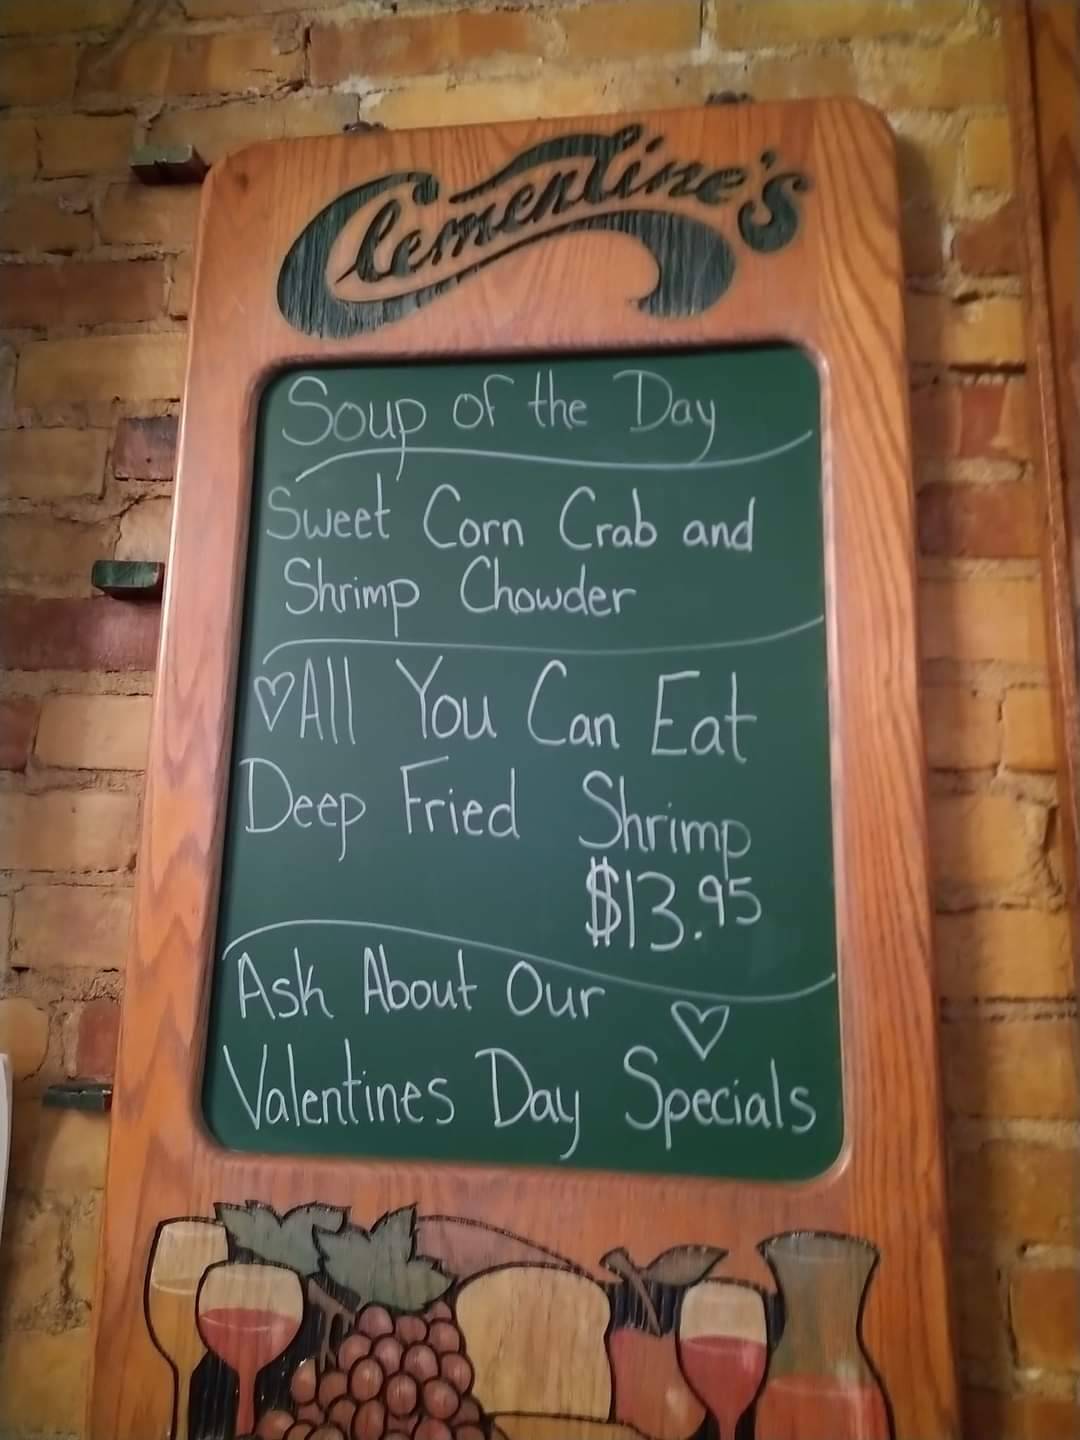 Clementine's
Soup of the Day
Sweet Corn Crab and
Shrimp Chowder
♡All You Can Eat
Deep Fried Shrimp
$13.95
Ask About Our
♡
Valentines Day Specials